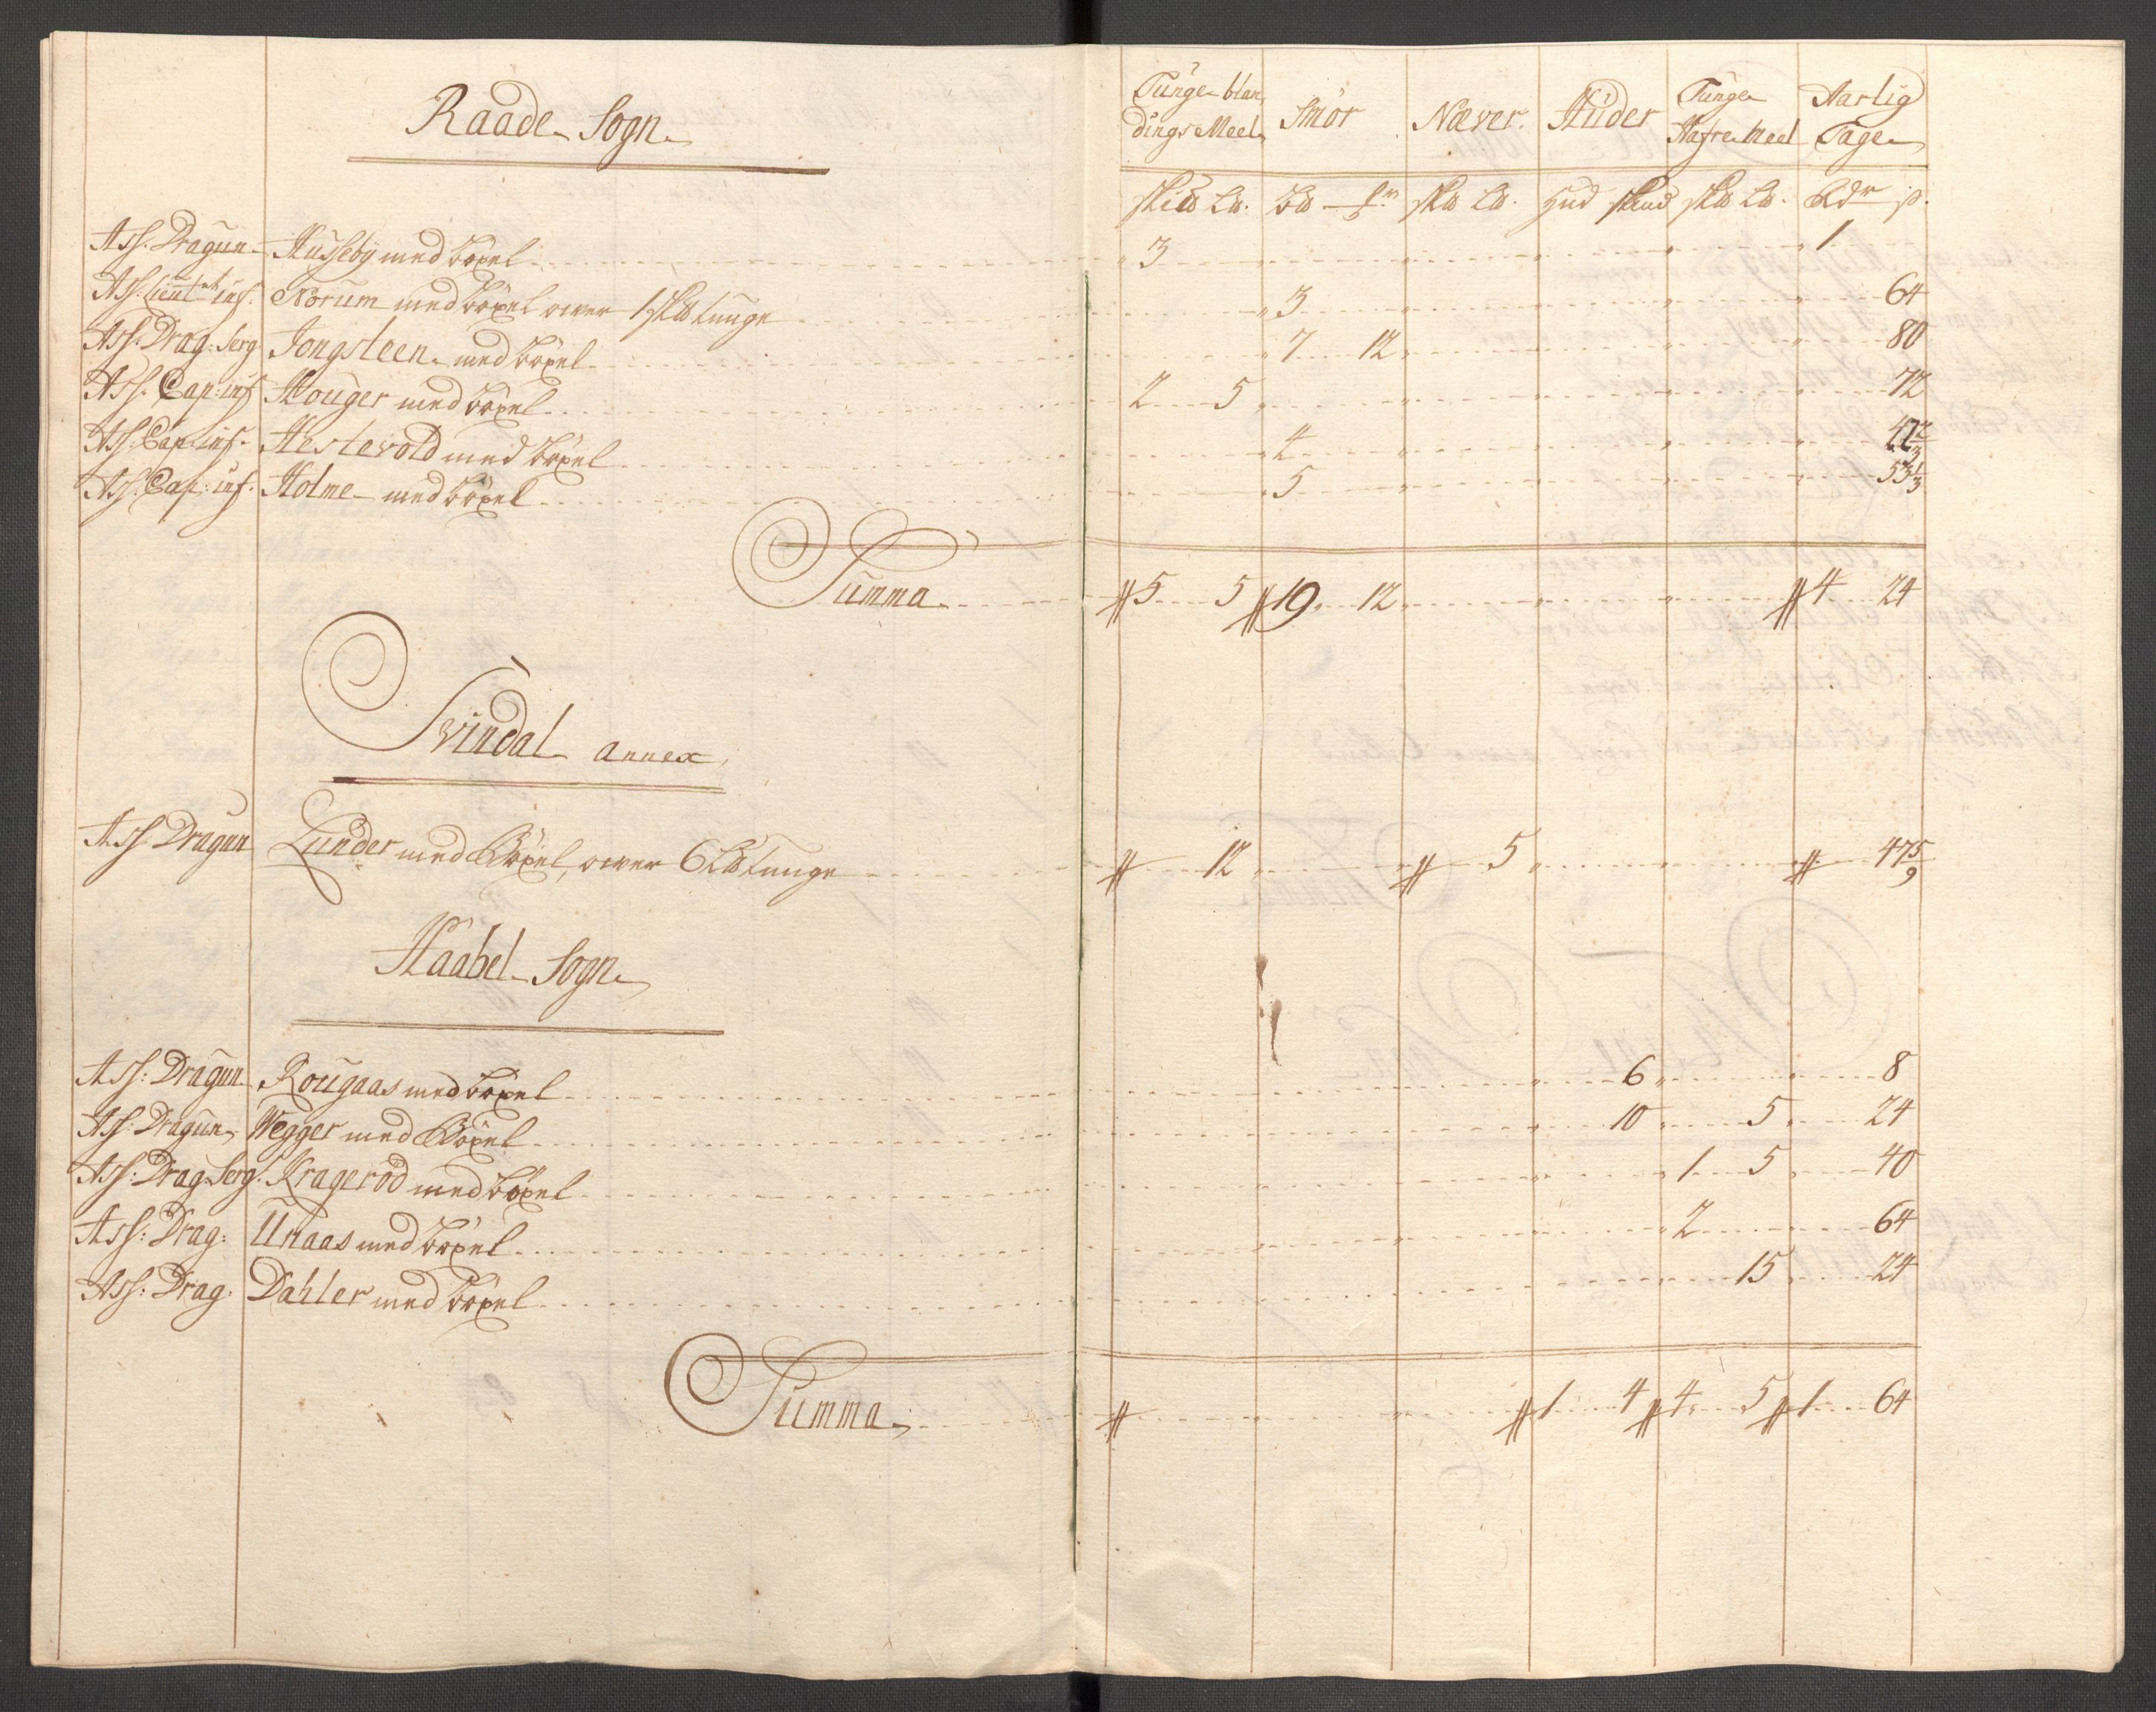 Raade Sogn
Tunge blan, dings Meel Smör Næver. Huder Tunge Hafre Meel Aarlig Tage
sk℔ L℔. L℔ sk℔ L℔. Hud skind sk℔ L℔. Rdr ß.
Ass. Dragun Husseby med böxel 3 1
Ass. Lieut inf. Norum med böxel over 1 sk℔ tunge 3 64
Ass. Drag: Serg Jongsteen med böxel 7 12 80
Ass. Cap: inf Houger med böxel 2 5 72
Ass. Cap: inf. Hestevold med böxel 4 42 2/3
Ass. Cap: inf. Holme med böxel 5 53 1/3
Summa 5 5 19 12 4 24
Svindal annex
Ass Dragun Lunder med Böxel, over 6 L℔ tunge 12 5 47 5/9
Haabel Sogn
Ass: Dragun Rougaas med böxel 6 8
Ass: Dragun Wegger med Böxel 10 5 24
Ass: Drag Serg. Kragerød med böxel 1 5 40
Ass: Drag: Unaas med böxel 2 64
Ass: Drag. Dahler med böxel 15 24
Summa 1 4 4 5 1 64